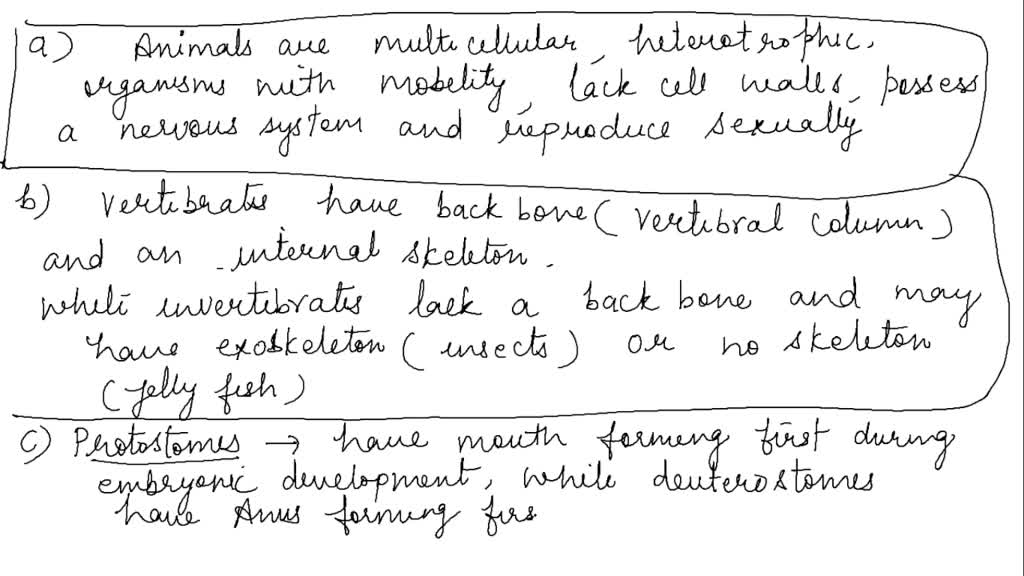 a) Animals are multicellular, heterotrophic,
organisms with mobelity, lack cell walls, possess
a nervous system and reproduce sexually
b) Vertibrates have back bone (vertibral column)
and an internal skeleton.
while invertibrates lack a back bone and may
have exoskeleton (insects) or no skeleton
(jelly fish)
c) Protostomes → have mouth forming first during
embryonic development, while deuterostomes
have Anus forming firs